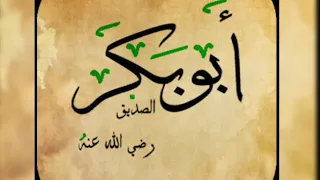 أبوبكر
الصديق
رضي الله عنه